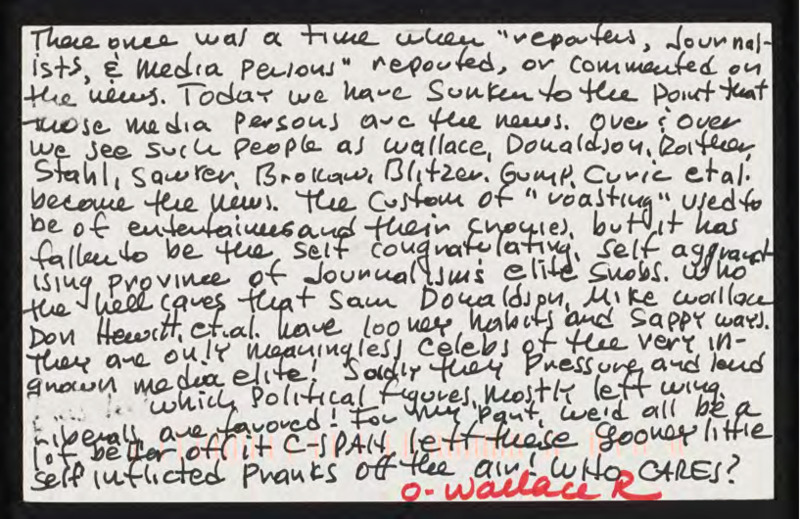 There once was a time when "reporters, Journal-
ists, & Media Persons" reported, or commented on
the news. Today we have Sunken to the point that
those media Persons are the news. Over & over
we see such People as Wallace, Donaldson, Raither,
Stahl, Sawyer, Brokaw, Blitzer, Gump, Curic et al.
become the news. The Custom of "roasting" used to
be of entertainers and their cronies, but it has
fallen to be the self congratulating, self aggrand
ising province of Journalism's elite snobs. Who
the hell cares that Sam Donaldson, Mike Wallace
Don Hewitt, et.al. have looney habits and Sappy ways.
They are only meaningless Celebs of the very in-
grown media elite! Sadly they Pressure, and lend
which Political figures, mostly left wing
liberals are favored! For my Part, we'd all be a
lot better off if C-SPAN left these gooney little
self inflicted Pranks off the air! WHO CARES?
O-Wallace R